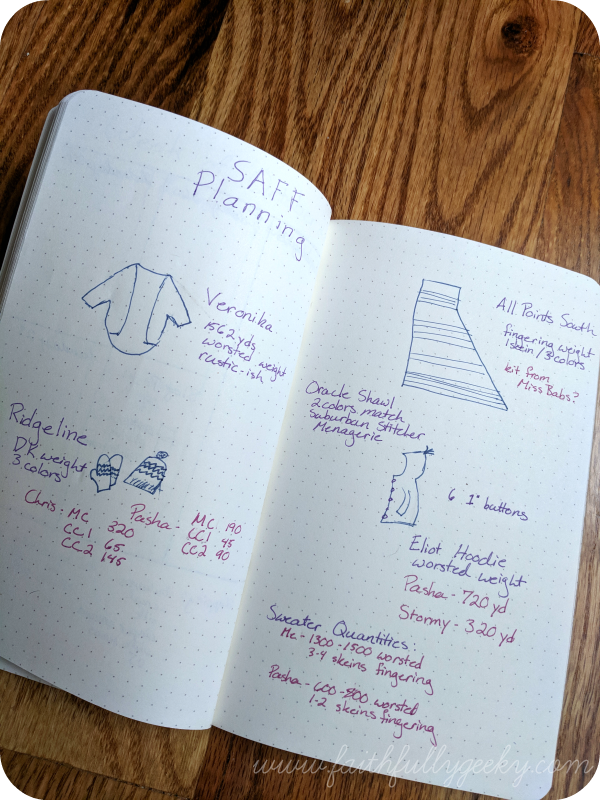 SAFF
Planning
Veronika
1562 yds
worsted weight
rustic-ish
Ridgeline
DK weight
3 colors
Chris: MC 320
CC1 65
CC2 145
Pasha - MC 190
CC1 45
CC2 90
All Points South
fingering weight
1 skein / 3 colors
kit from
Miss Babs?
Oracle Shawl
2 colors, match
Suburban Stitcher
Menagerie
6 1" buttons
Eliot Hoodie
worsted weight
Pasha - 720 yd
Stormy - 320 yd
Sweater Quantities:
Me - 1300-1500 worsted
3-4 skeins fingering
Pasha - 600-800 worsted
1-2 skeins fingering
www.faithfullygeeky.com